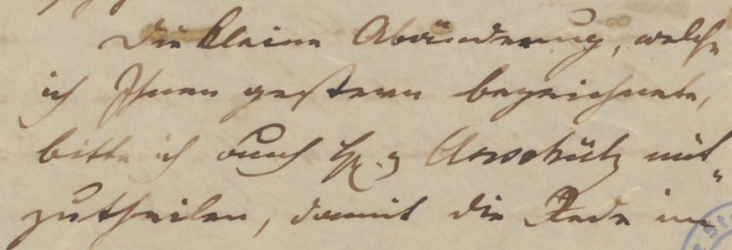 Die kleine Abänderung, welche
ich Ihnen gestern bezeichnete,
bitte ich auch H. Anschütz mit
zutheilen, damit die Rede im